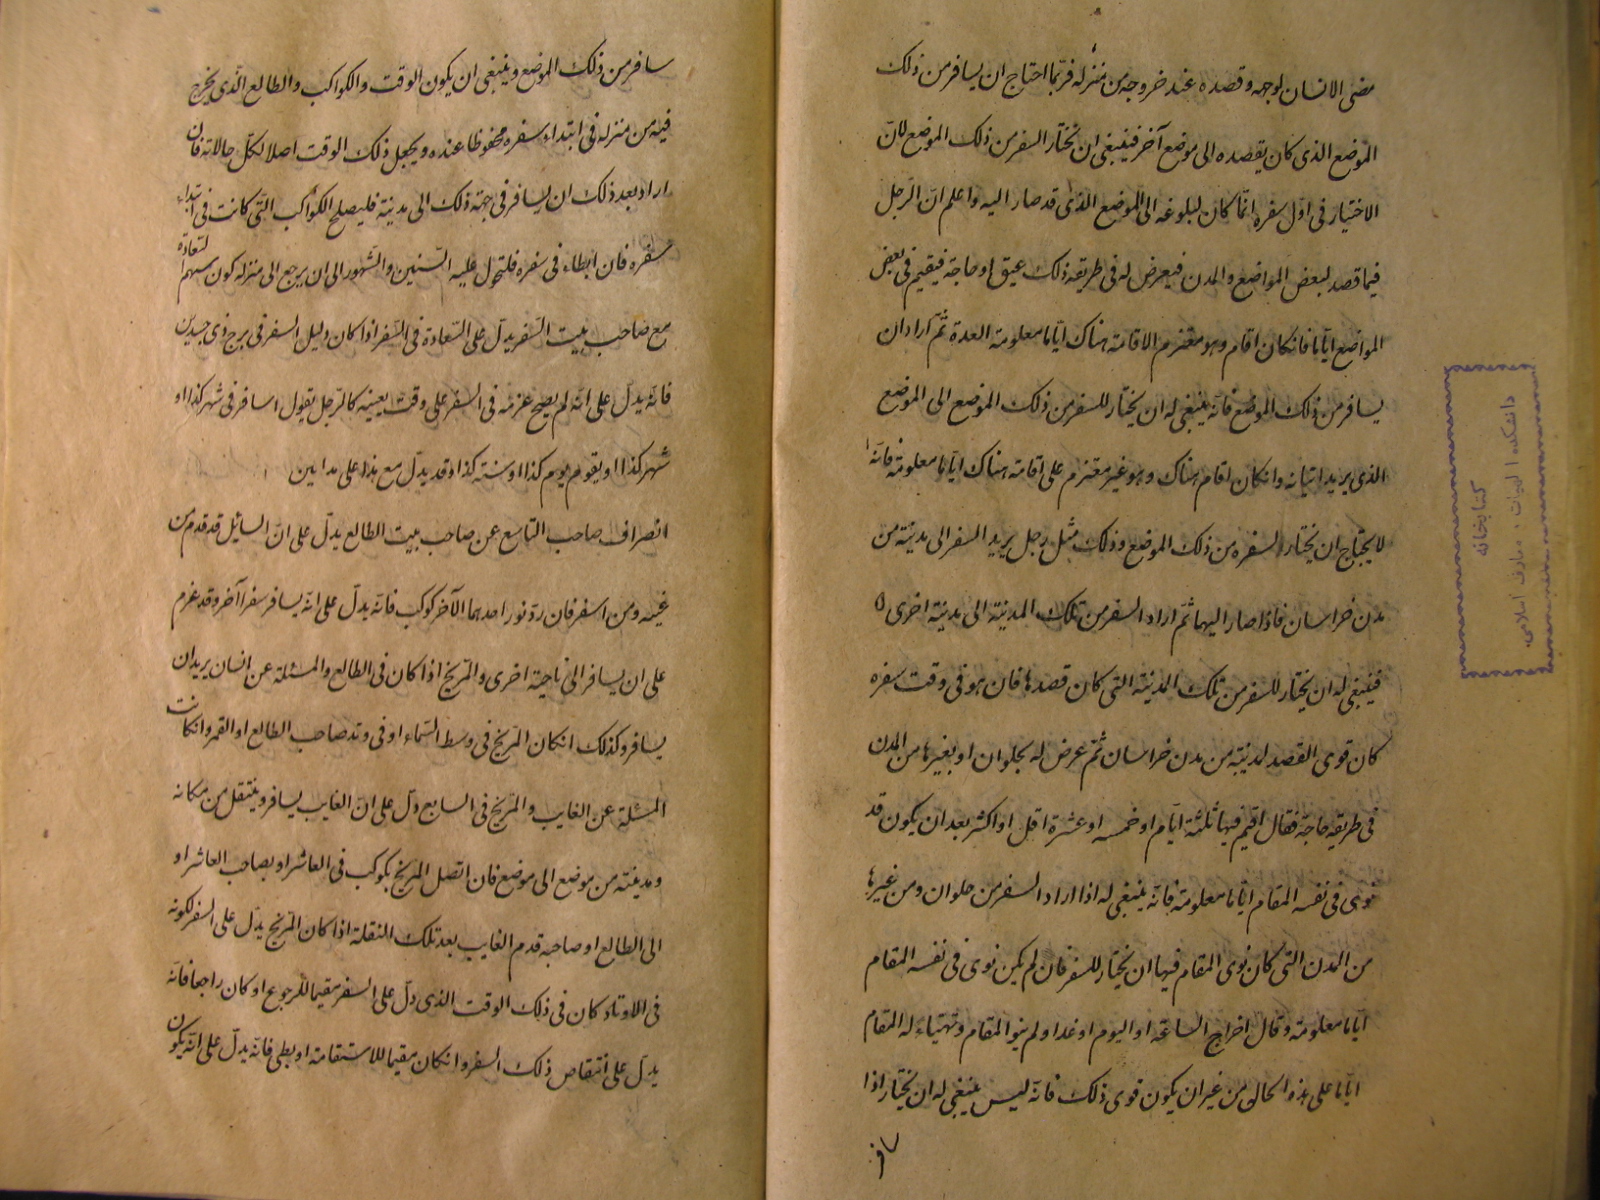 مضى الانسان لوجهه وقصده عند خروجه من منزله فربّما احتاج ان يسافر من ذلك
الموضع الذى كان يقصده الى موضع آخر فينبغى ان يختار السفر من ذلك الموضع لانّ
الاختيار فى اوّل سفره انّما كان لبلوغه الى الموضع الذى قد صار اليه واعلم انّ الرّجل
فيما قصد لبعض المواضع والمدن فيعرض له فى طريقه ذلك عيق او حاجة فيقيم فى بعض
المواضع ايّاما فانكان اقام وهو معتزم الاقامة هناك ايّاما معلومة العدة ثمّ اراد ان
يسافر من ذلك الموضع فانّه ينبغى له ان يختار للسفر من ذلك الموضع الى الموضع
الذى يريد اتيانه وانكان اقام هناك وهو غير معتزم على اقامة هناك ايّاما معلومة فانّه
لا يحتاج ان يختار لسفره من ذلك الموضع وذلك مثل رجل يريد السفر الى مدينة من
مدن خراسان فاذا صار اليها ثمّ اراد السفر من تلك المدينة الى مدينة اخرى
فينبغى له ان يختار للسفر من تلك المدينة التى كان قصدها فان هو فى وقت سفره
كان قوى القصد لمدينة من مدن خراسان ثمّ عرض له بحلوان او بغيرها من المدن
فى طريقه حاجة فقال اقيم فيها ثلثة ايّام او خمسه او عشرة اقل او اكثر بعد ان يكون قد
نوى فى نفسه المقام ايّاما معلومة فانّه ينبغى له اذا اراد السفر من حلوان ومن غيرها
من المدن التى كان نوى المقام فيها ان يختار للسفر فان لم يكن نوى فى نفسه المقام
ايّاما معلومة وقال اخراج الساعة او اليوم او غدا ولم ينو المقام وتهيّاء له المقام
ايّاما على هذه الحال من غير ان يكون قوى ذلك فانّه ليس ينبغى له ان يختار اذا
سافر
سافر من ذلك الموضع وينبغى ان يكون الوقت والكواكب والطالع الّذى يخرج
فيه من منزله فى ابتداء سفره محفوظا عنده ويجعل ذلك الوقت اصلا لكلّ حالاته فان
اراد بعد ذلك ان يسافر فى جهة ذلك الى مدينة فليصلح الكواكب التّى كانت فى ابتداء
سفره فان ابطاء فى سفره فلتحول عليه السّنين والشّهور الى ان يرجع الى منزله كون سهم السّعادة
مع صاحب بيت السّفر يدلّ على السّعادة فى السّفر اذا كان دليل السفر فى برج ذى جسدين
فانّه يدلّ على انّه لم يصح عزمه فى السفر على وقت بعينه كالرّجل يقول اسافر فى شهر كذا او
شهر كذا او يقوم يوم كذا او سنة كذا وقد يدلّ مع هذا على مداين
انصراف صاحب التّاسع عن صاحب بيت الطالع يدلّ على انّ السائل قد قدم من
غيبه ومن اسفر فان ردّ نور احدهما الآخر كوكب فانّه يدلّ على انّه يسافر سفرا آخر وقد عزم
على ان يسافر الى ناحية اخرى والمرّيخ اذا كان فى الطالع والمسئلة عن انسان يريد ان
يسافر وكذلك انكان المريخ فى وسط السّماء او فى وتد صاحب الطالع او القمر وانكانت
المسئلة عن الغايب والمرّيخ فى السابع دلّ على انّ الغايب يسافر وينتقل من مكانه
ومدينته من موضع الى موضع فان اتصل المرّيخ بكوكب فى العاشر او بصاحب العاشر او
الى الطالع او صاحبه قدم الغايب بعد تلك النقلة اذا كان المرّيخ يدلّ على السفر لكونه
فى الاوتاد كان فى ذلك الوقت الذى دلّ على السفر مقيما للرجوع او كان راجعا فانّه
يدلّ على انتقاص ذلك السفر وانكان مقيما للاستقامة او بطى فانّه يدلّ على انّه يكون
كتابخانه
دانشكده الهيات و معارف اسلامى